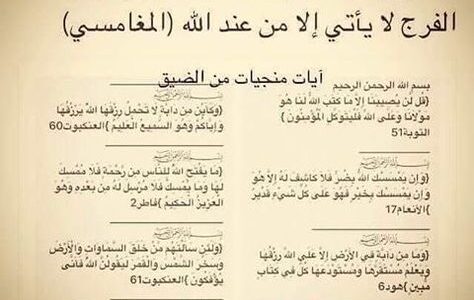 الفرج لا يأتي إلا من عند الله (المغامسي)
آيات منجيات من الضيق
بسم الله الرحمن الرحيم
{قُل لَّن يُصِيبَنَا إِلاَّ مَا كَتَبَ اللّهُ لَنَا هُوَ
مَوْلاَنَا وَعَلَى اللّهِ فَلْيَتَوَكَّلِ الْمُؤْمِنُونَ }
التوبة51
بسم الله الرحمن الرحيم
{وَإِن يَمْسَسْكَ اللّهُ بِضُرٍّ فَلاَ كَاشِفَ لَهُ إِلاَّ هُوَ
وَإِن يَمْسَسْكَ بِخَيْرٍ فَهُوَ عَلَى كُلِّ شَيْءٍ قَدِيرٌ
}الأنعام17
بسم الله الرحمن الرحيم
{وَمَا مِن دَآبَّةٍ فِي الأَرْضِ إِلاَّ عَلَى اللّهِ رِزْقُهَا
وَيَعْلَمُ مُسْتَقَرَّهَا وَمُسْتَوْدَعَهَا كُلٌّ فِي كِتَابٍ
مُّبِينٍ }هود6
بسم الله الرحمن الرحيم
{وَكَأَيِّن مِن دَابَّةٍ لَا تَحْمِلُ رِزْقَهَا اللَّهُ يَرْزُقُهَا
وَإِيَّاكُمْ وَهُوَ السَّمِيعُ الْعَلِيمُ }العنكبوت60
بسم الله الرحمن الرحيم
{مَا يَفْتَحِ اللَّهُ لِلنَّاسِ مِن رَّحْمَةٍ فَلَا مُمْسِكَ
لَهَا وَمَا يُمْسِكْ فَلَا مُرْسِلَ لَهُ مِن بَعْدِهِ وَهُوَ
الْعَزِيزُ الْحَكِيمُ }فاطر2
بسم الله الرحمن الرحيم
{وَلَئِن سَأَلْتَهُم مَّنْ خَلَقَ السَّمَاوَاتِ وَالْأَرْضَ
وَسَخَّرَ الشَّمْسَ وَالْقَمَرَ لَيَقُولُنَّ اللَّهُ فَأَنَّى
يُؤْفَكُونَ }العنكبوت61